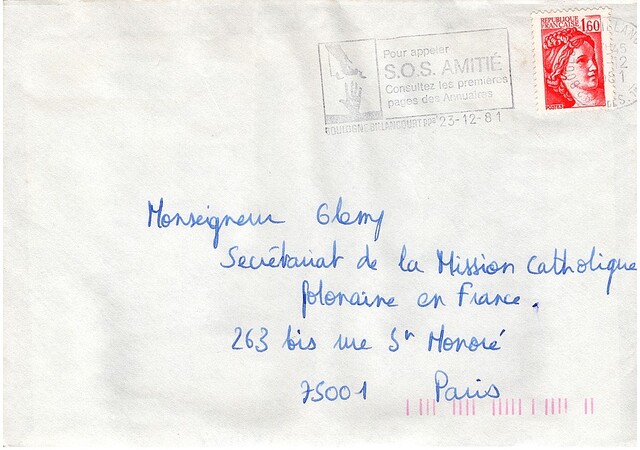 RÉPUBLIQUE
FRANÇAISE 1,60
POSTES
Pour appeler
S.O.S. AMITIÉ
Consultez les premières
pages des Annuaires
BOULOGNE BILLANCOURT PPAL 23-12-81
Monseigneur Glemp
Secrétariat de la Mission Catholique
Polonaise en France.
263 bis rue St Honoré
75001 Paris